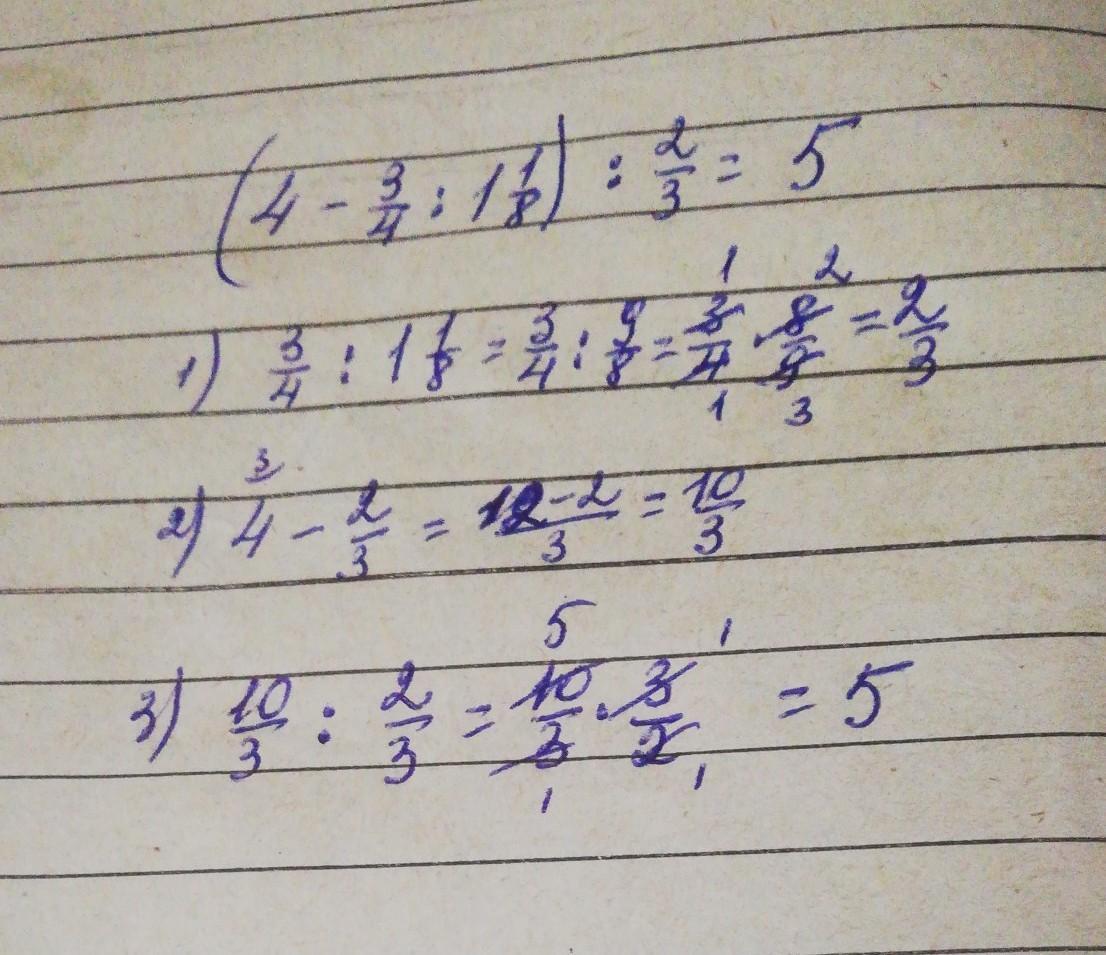 (4 - 3/4 : 1 1/8) : 2/3 = 5
1) 3/4 : 1 1/8 = 3/4 : 9/8 = 3/4 · 8/9 = 2/3
1 2
1 3
3
2) 4 - 2/3 = 12-2/3 = 10/3
5 1
3) 10/3 : 2/3 = 10/3 · 3/2 = 5
1 1